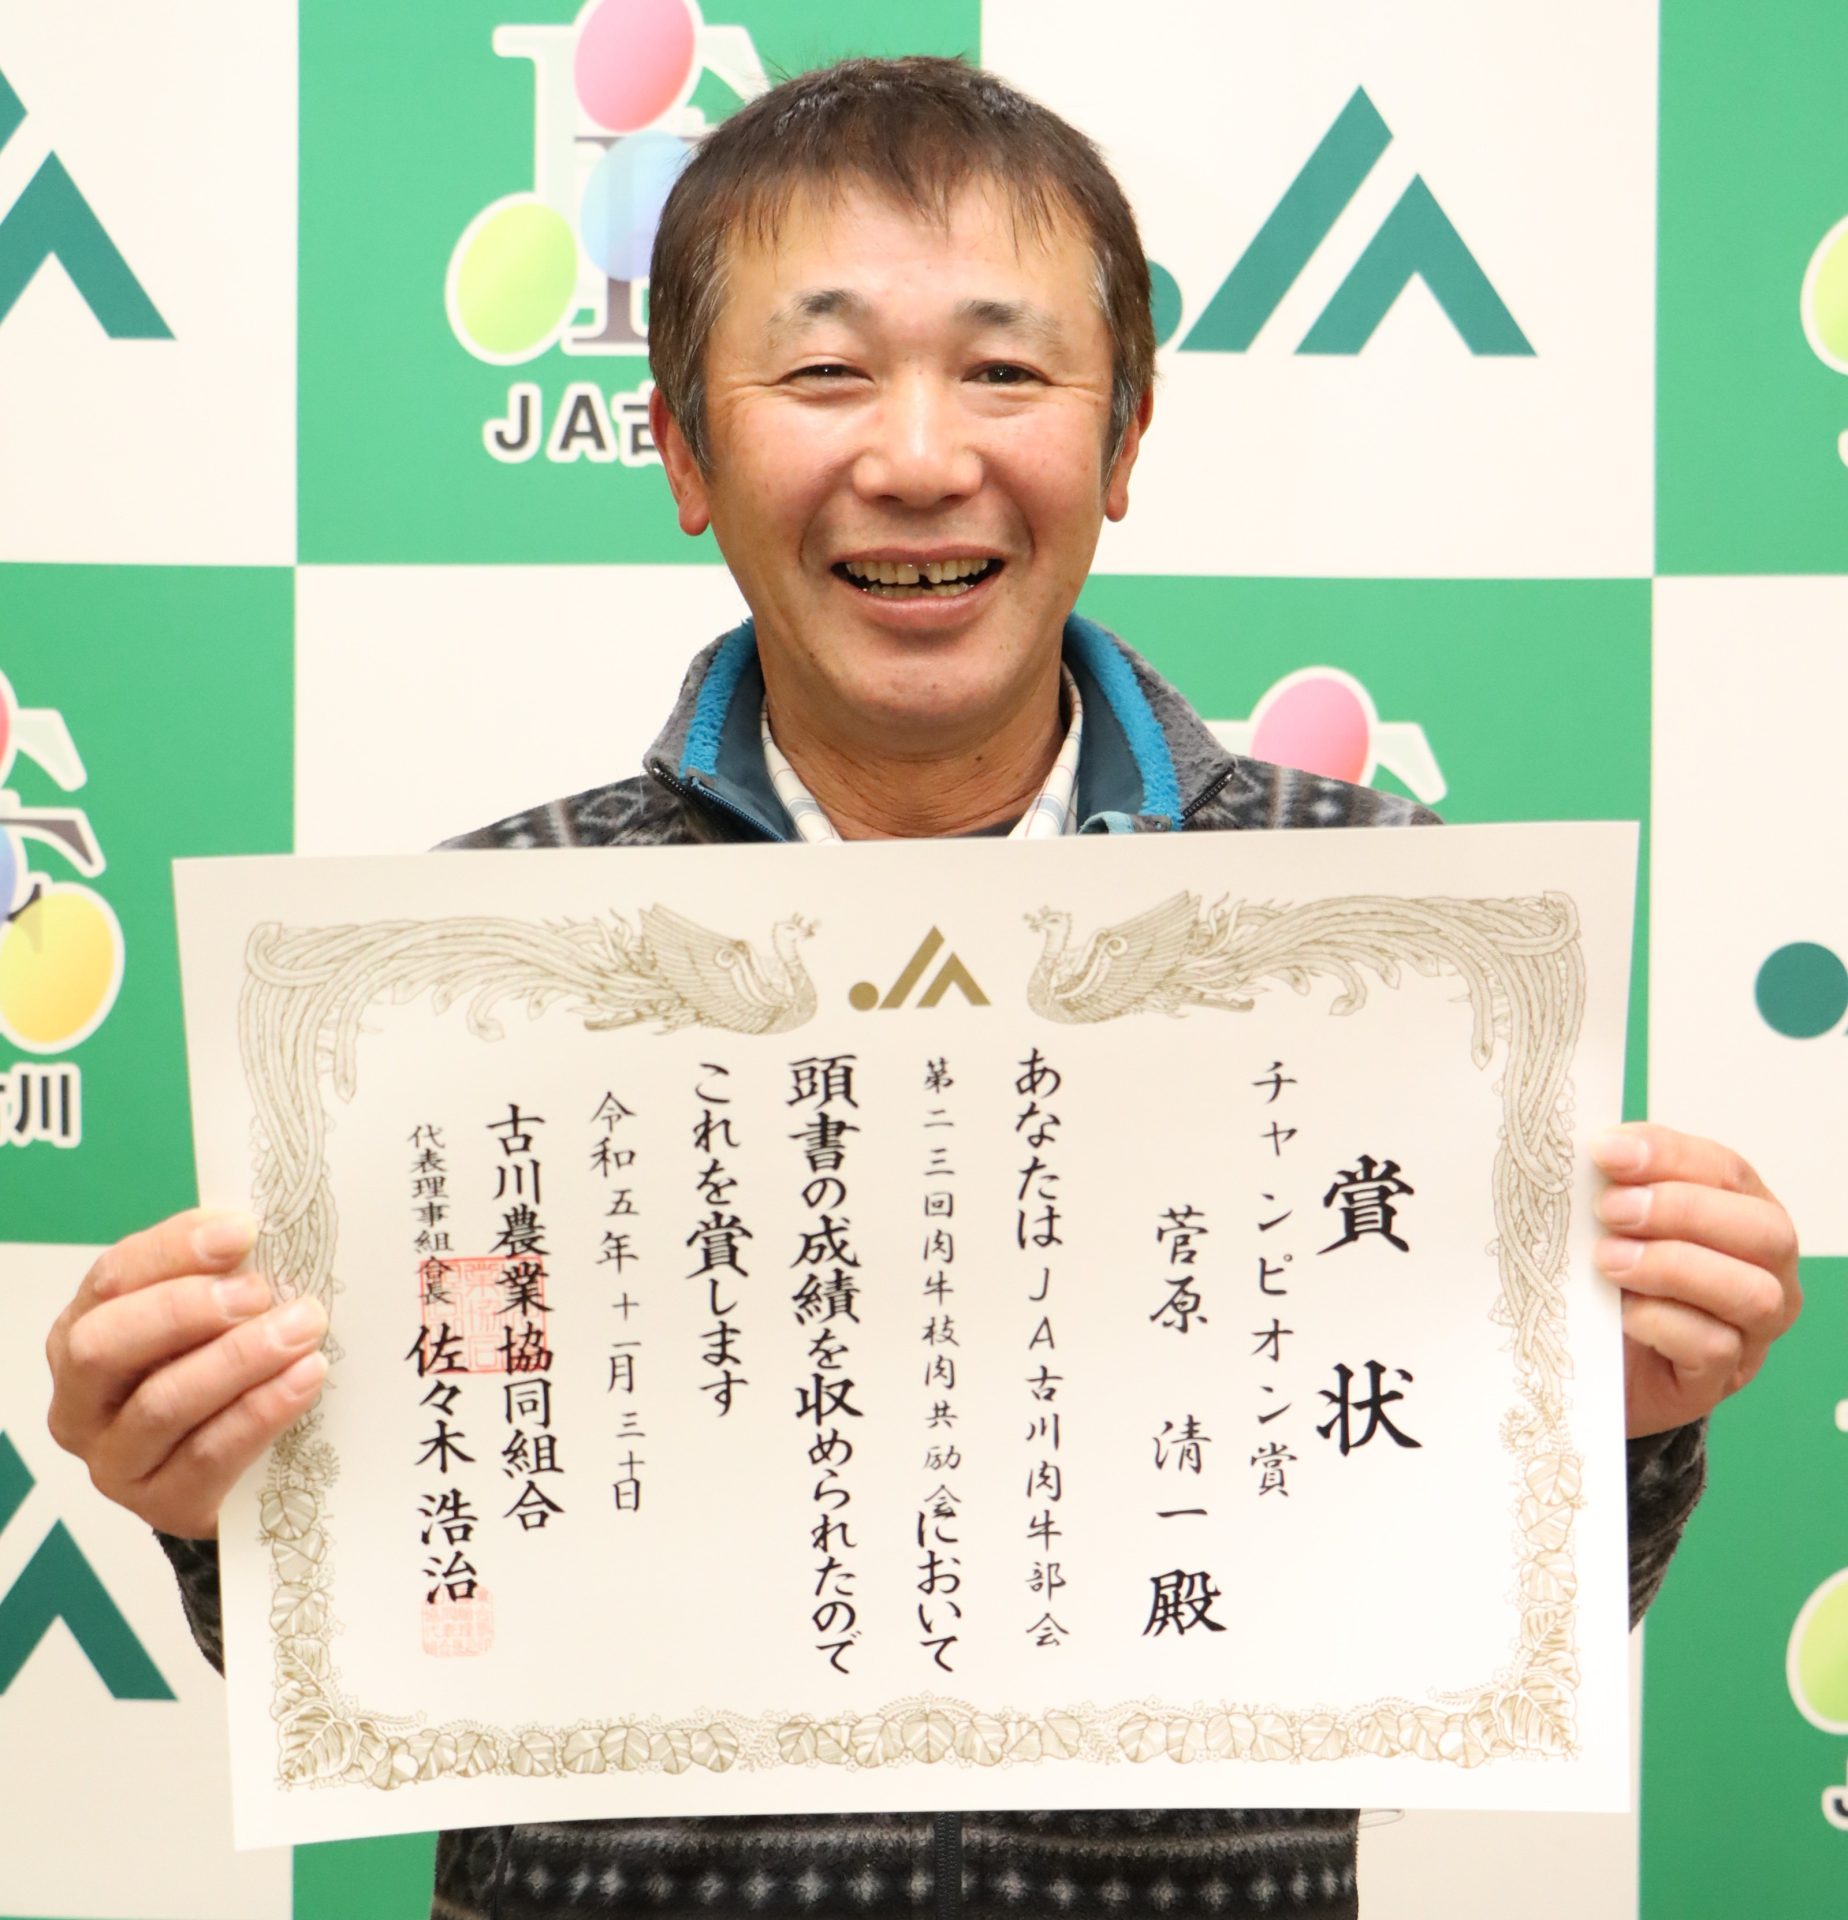 賞状
チャンピオン賞
菅原 清一 殿
あなたはJA古川肉牛部会
第二三回肉牛枝肉共励会において
頭書の成績を収められたので
これを賞します
令和五年十一月三十日
古川農業協同組合
代表理事組合長 佐々木 浩治
JA
JA古
川
JA